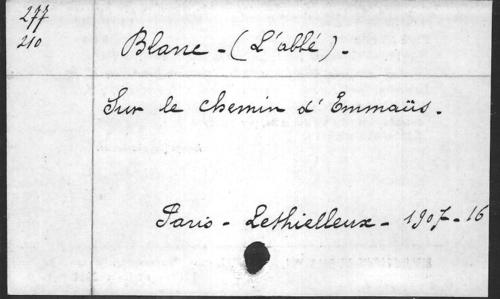 277
210
Blanc - (L'abbé) -
Sur le chemin d'Emmaüs.
Paris - Lethielleux - 1907 - 16